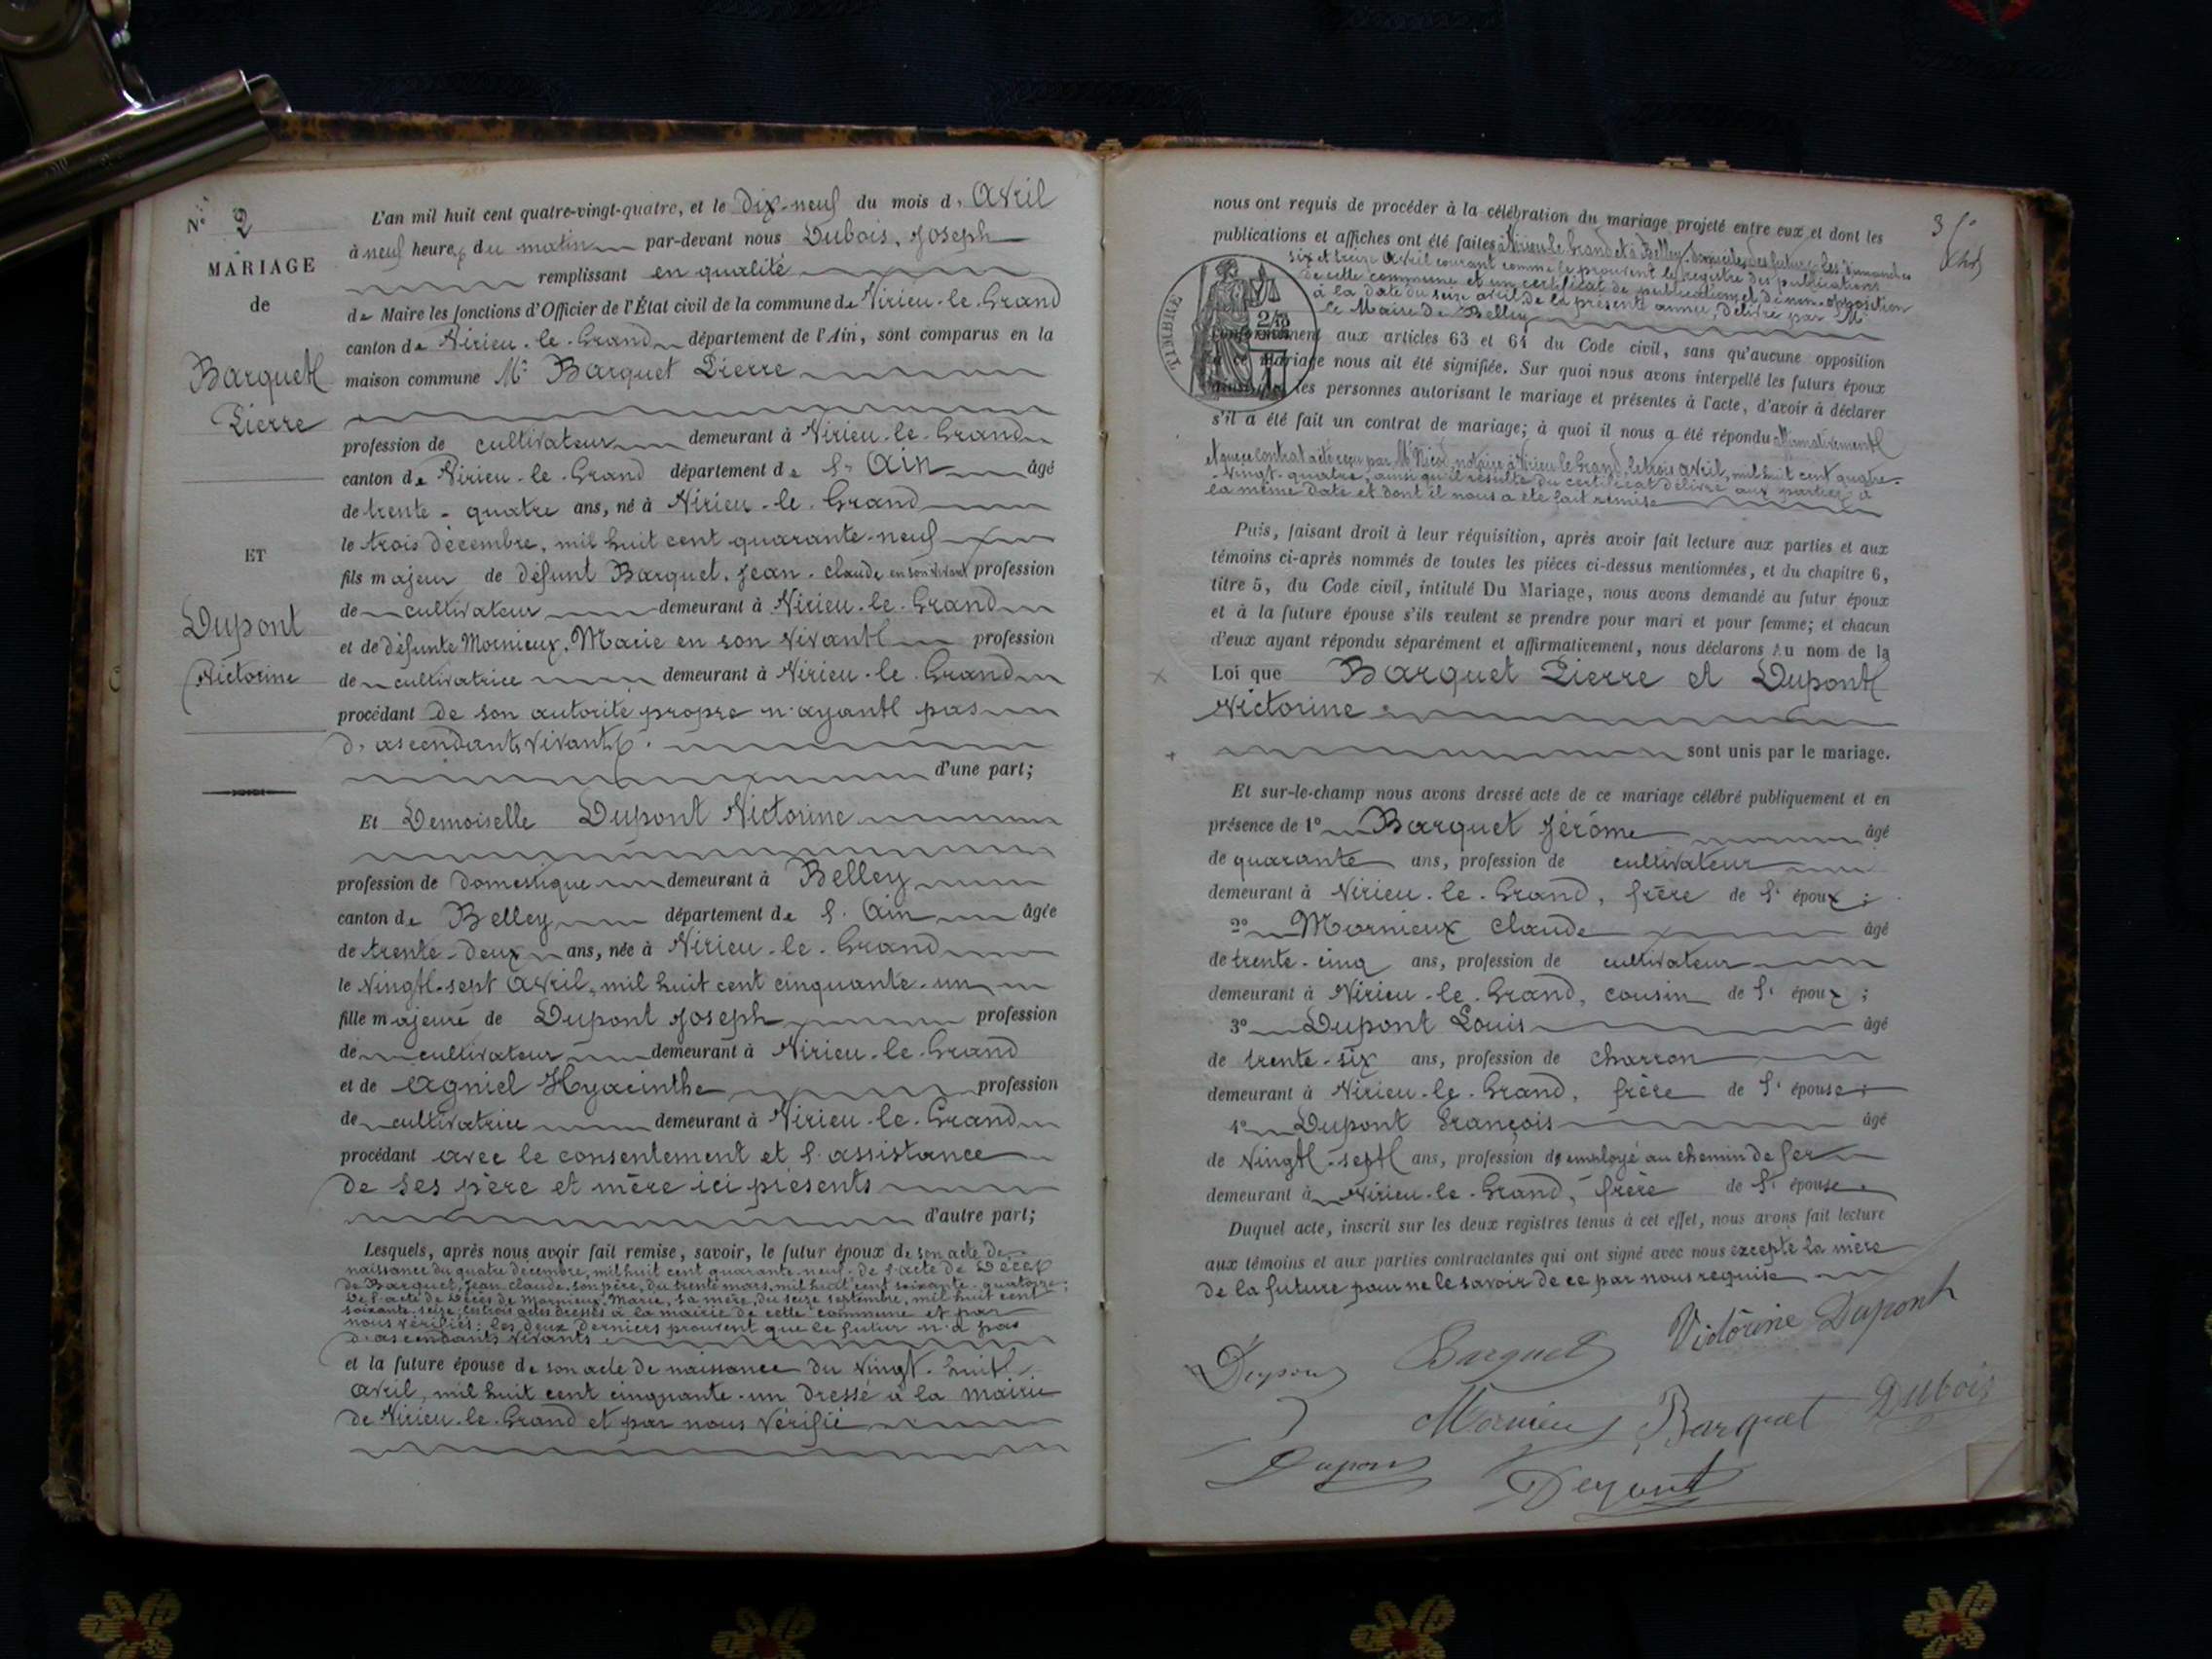 N° 2
MARIAGE
de
Barquet
Pierre
ET
Dupont
Victorine
L'an mil huit cent quatre-vingt-quatre, et le Dix-neuf du mois d' Avril
à neuf heures du matin par-devant nous Dubois, Joseph
remplissant en qualité
de Maire les fonctions d'Officier de l'État civil de la commune de Virieu-le-Grand
canton de Virieu-le-Grand département de l'Ain, sont comparus en la
maison commune Mr Barquet Pierre
profession de cultivateur demeurant à Virieu-le-Grand
canton de Virieu-le-Grand département de l'Ain âgé
de trente-quatre ans, né à Virieu-le-Grand
le trois décembre, mil huit cent quarante-neuf
fils majeur de défunt Barquet, Jean-Claude en son vivant profession
de cultivateur demeurant à Virieu-le-Grand
et de défunte Mornieux, Marie en son vivant profession
de cultivatrice demeurant à Virieu-le-Grand
procédant de son autorité propre n'ayant pas
d'ascendants vivants.
d'une part;
Et Demoiselle Dupont Victorine
profession de domestique demeurant à Belley
canton de Belley département de l'Ain âgée
de trente-deux ans, née à Virieu-le-Grand
le Vingt-sept Avril, mil huit cent cinquante-un
fille majeure de Dupont Joseph profession
de cultivateur demeurant à Virieu-le-Grand
et de Agniel Hyacinthe profession
de cultivatrice demeurant à Virieu-le-Grand
procédant avec le consentement et l'assistance
de ses père et mère ici présents
d'autre part;
Lesquels, après nous avoir fait remise, savoir, le futur époux de son acte de
naissance du quatre décembre, mil huit cent quarante-neuf; de l'acte de Décès
de Barquet, Jean-Claude, son père, du trente mars, mil huit cent soixante-quatorze;
De l'acte de Décès de Mornieux, Marie, sa mère, du seize septembre, mil huit cent
soixante-seize; les trois actes dressés à la mairie de cette commune et par
nous vérifiés; les deux derniers prouvent que le futur n'a pas
d'ascendants vivants
et la future épouse de son acte de naissance du vingt-huit
Avril, mil huit cent cinquante-un dressé à la mairie
de Virieu-le-Grand et par nous vérifié
nous ont requis de procéder à la célébration du mariage projeté entre eux et dont les
publications et affiches ont été faites à Virieu-le-Grand et à Belley, domiciles des futurs, les dimanches
six et treize Avril courant comme le prouvent le registre des publications
de cette commune et un certificat de publication et de non-opposition
à la date du seize avril de la présente année, délivré par Mr
le Maire de Belley
TIMBRE
conformément aux articles 63 et 64 du Code civil, sans qu'aucune opposition
à ce mariage nous ait été signifiée. Sur quoi nous avons interpellé les futurs époux
les personnes autorisant le mariage et présentes à l'acte, d'avoir à déclarer
s'il a été fait un contrat de mariage; à quoi il nous a été répondu affirmativement
et que ce contrat a été reçu par Me Nicod, notaire à Virieu-le-Grand, le trois avril, mil huit cent quatre-
-vingt-quatre, ainsi qu'il résulte du certificat délivré aux parties à
la même date et dont il nous a été fait remise
Puis, faisant droit à leur réquisition, après avoir fait lecture aux parties et aux
témoins ci-après nommés de toutes les pièces ci-dessus mentionnées, et du chapitre 6,
titre 5, du Code civil, intitulé Du Mariage, nous avons demandé au futur époux
et à la future épouse s'ils veulent se prendre pour mari et pour femme; et chacun
d'eux ayant répondu séparément et affirmativement, nous déclarons Au nom de la
Loi que Barquet Pierre et Dupont
Victorine
sont unis par le mariage.
Et sur-le-champ nous avons dressé acte de ce mariage célébré publiquement et en
présence de 1° Barquet Jérôme âgé
de quarante ans, profession de cultivateur
demeurant à Virieu-le-Grand, frère de l'époux;
2° Mornieux Claude âgé
de trente-cinq ans, profession de cultivateur
demeurant à Virieu-le-Grand, cousin de l'époux;
3° Dupont Louis âgé
de trente-six ans, profession de charron
demeurant à Virieu-le-Grand, frère de l'épouse;
4° Dupont François âgé
de Vingt-sept ans, profession d'employé au chemin de fer
demeurant à Virieu-le-Grand, frère de l'épouse.
Duquel acte, inscrit sur les deux registres tenus à cet effet, nous avons fait lecture
aux témoins et aux parties contractantes qui ont signé avec nous excepté la mère
de la future pour ne le savoir de ce par nous requise
Victorine Dupont
Dupont Barquet
Mornieux Barquet Dubois
Dupont Dupont